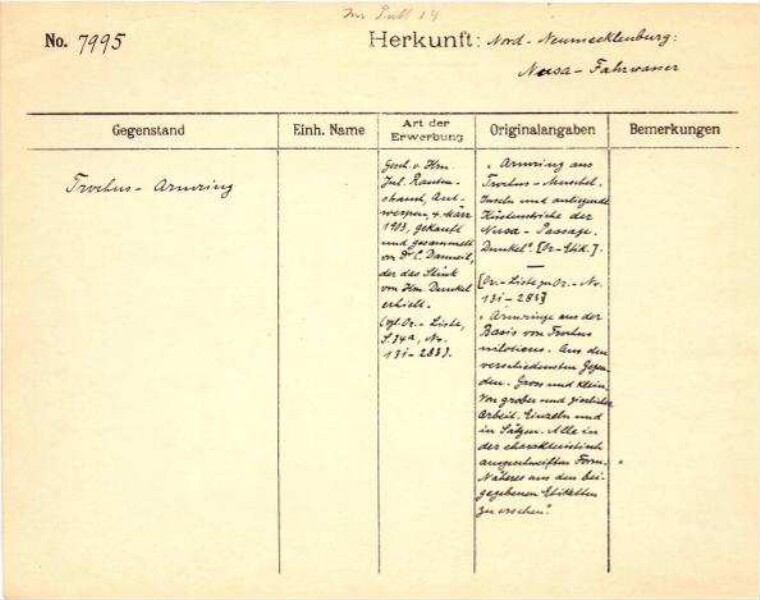 No. 7995
Herkunft: Nord-Neumecklenburg:
Nusa-Fahrwasser
Gegenstand
Einh. Name
Art der Erwerbung
Originalangaben
Bemerkungen
Trochus-Armring
Gesch. v. Hrn.
Jul. Rauten-
strauch, Ant-
werpen, 4. März
1913, gekauft
und gesammelt
von Dr. C. Danneil,
der das Stück
von Hrn. Dunkel
erhielt.
(vgl. Or.-Liste,
S. 34a, No.
131-283).
„Armring aus
Trochus-Muschel.
Inseln und anliegende
Küstenstriche der
Nusa-Passage.
Dunkel". [Or-Etik.].
[Or.-Liste zu Or.-No.
131-283]
„Armringe aus der
Basis von Trochus
niloticus. Aus den
verschiedensten Gegen-
den. Gross und klein.
Von grober und zierlicher
Arbeit. Einzeln und
in Sätzen. Alle in
der charakteristisch
ausgeschweiften Form.
Näheres aus den bei-
gegebenen Etiketten
zu ersehen".